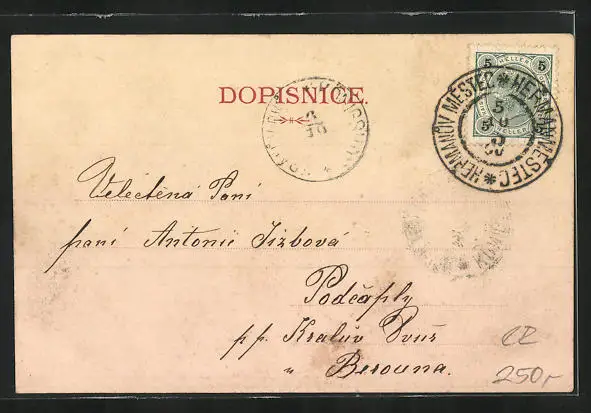 5 HELLER 5
DOPISNICE.
HEŘMANŮV MĚSTEC * HERMANNMESTEC *
5
5
Velectěná Paní
paní Antonii Jizbová
Podčaply
p.p. Králův Dvůr
u Berouna.
CZ
250,-